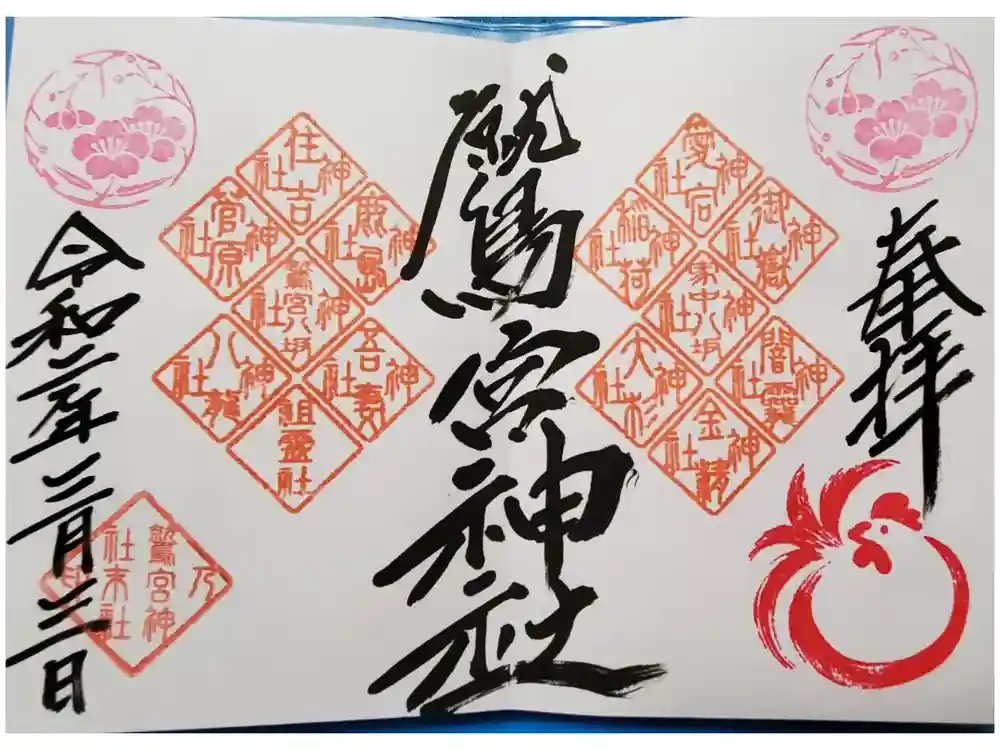 奉拝
愛宕神社
御嶽神社
稲荷神社
家中八坂神社
闇龗神社
大杉神社
金精神社
鷲宮神社
住吉神社
鹿島神社
菅原神社
鷲宮八坂神社
吾妻神社
八龍神社
祖靈社
令和二年三月三日
鷲宮神社末社乃印